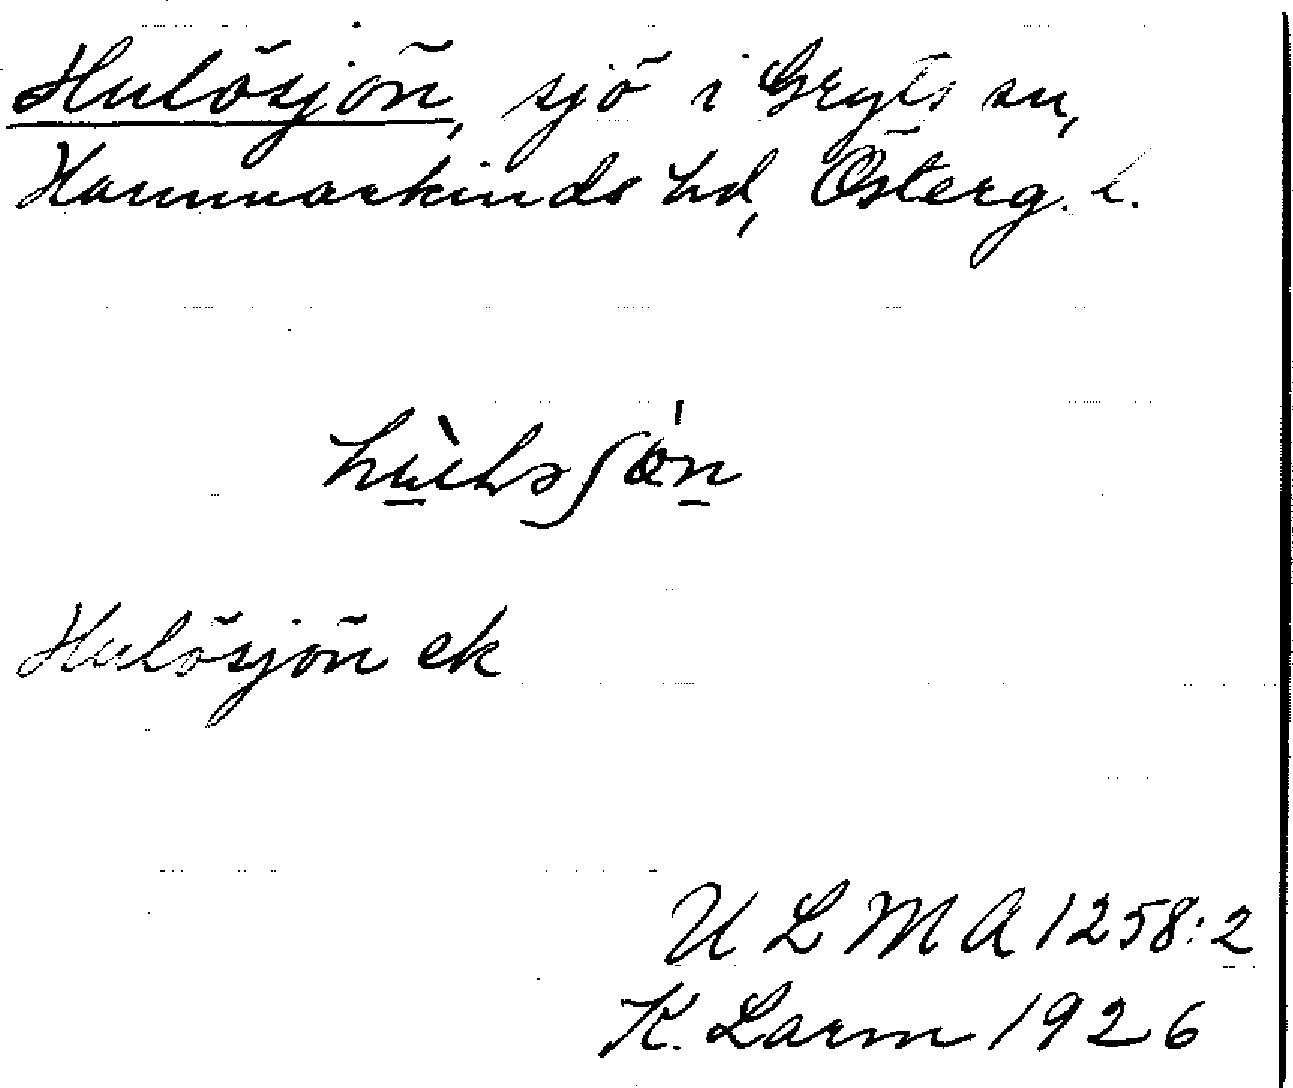 Hulösjön, sjö i Gryts sn,
Hammarkinds hd, Österg. l.
Hulösjön ek
U L M A 1258:2
K. Larm 1926